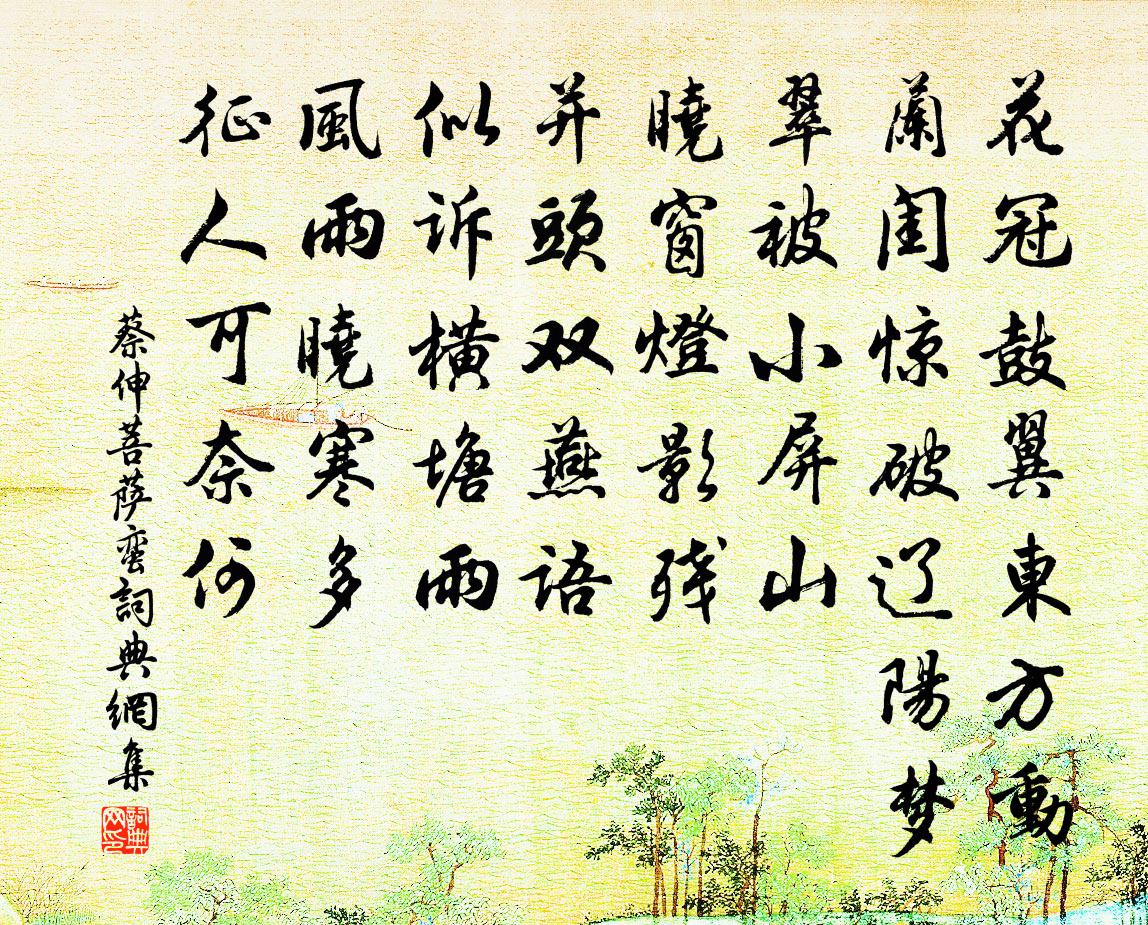 花冠鼓翼東方動
蘭閨惊破辽陽梦
翠被小屏山
曉窗燈影残
并頭双燕語
似诉橫塘雨
風雨曉寒多
征人可奈何
蔡伸菩萨蛮詞典網集
詞典网印